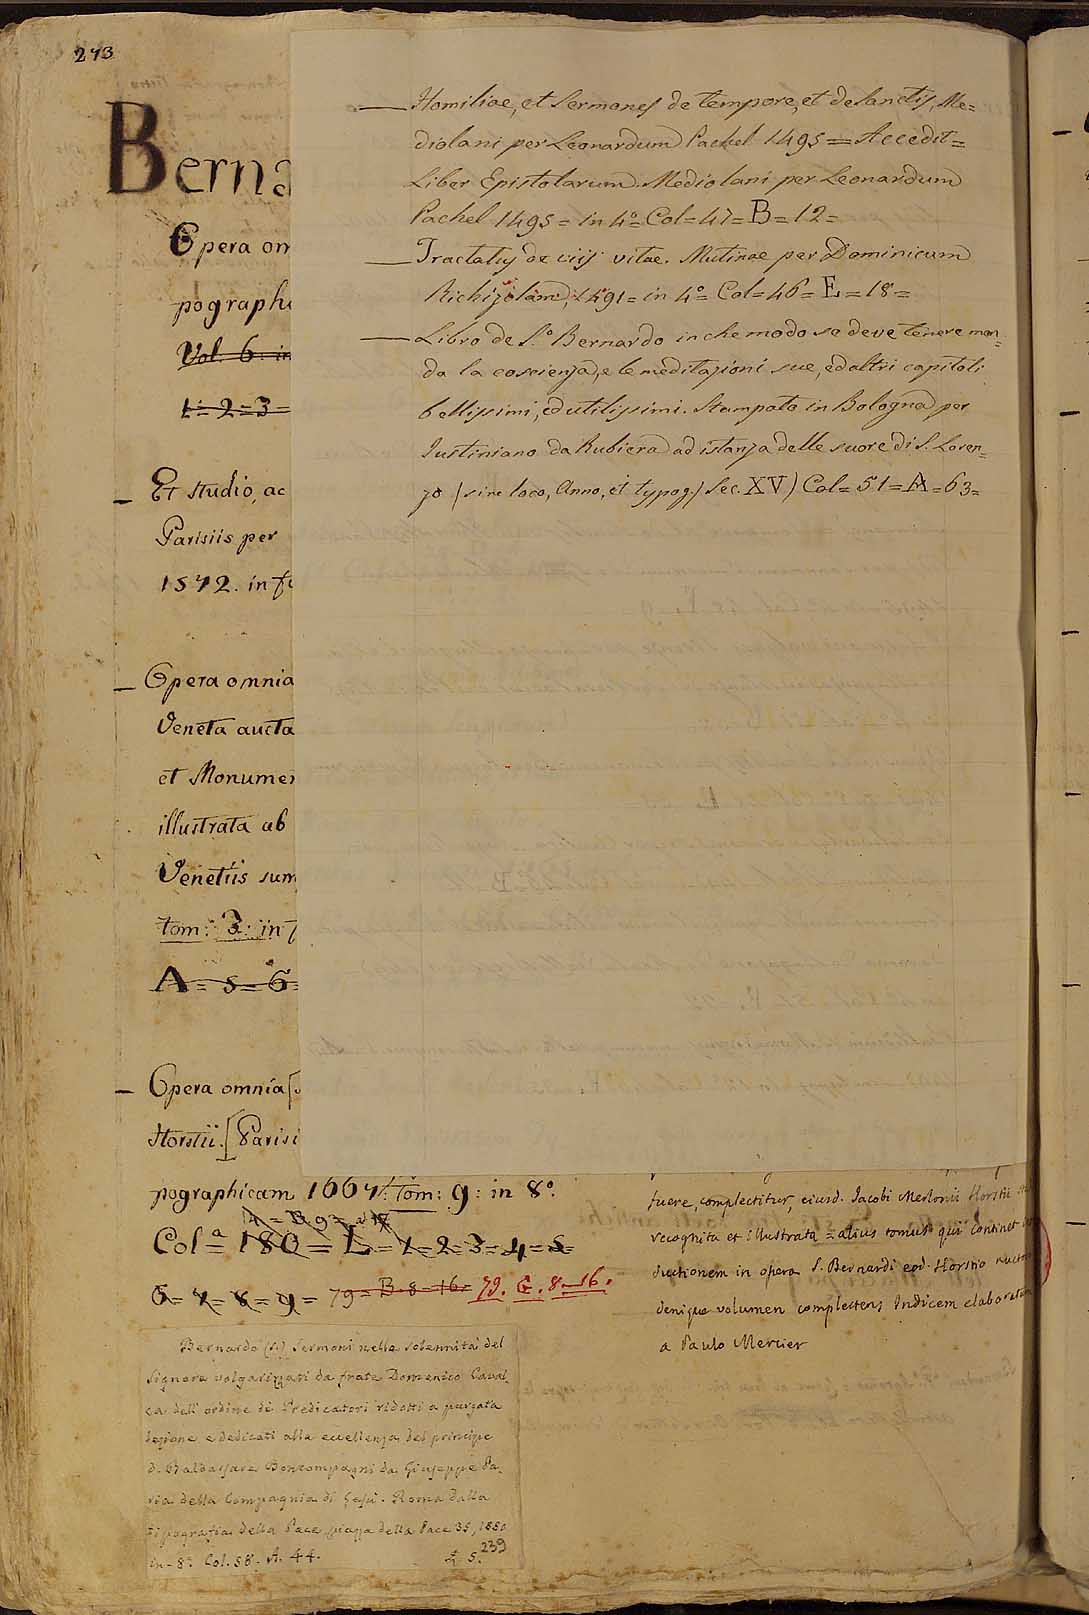 273
Berna
Opera om
pographi
Vol. 6. in
1=2=3=
— Et studio, ac
Parisiis per
1572. in fo
— Opera omnia
Veneta aucta
et Monumen
illustrata ab
Venetiis sum
tom: 3: in f
A=5=6=
— Opera omnia
Horstii. [Parisi
pographicam 1667. Tom: 9: in 8º.
Colª= 180= L= 1=2=3=4=5=
6=7=8=9= 79=B=8=16= 79. G. 8-16.
— Homiliae, et Sermones de tempore, et de Sanctis, Me=
diolani per Leonardum Pachel 1495= Accedit=
Liber Epistolarum. Mediolani per Leonardum
Pachel 1495= in 4º= Col= 47= B=12=
— Tractatus de viis vitae. Mutinae per Dominicum
Richizolam, 1491= in 4º= Col=46= E=18=
— Libro de S.º Bernardo in che modo se deve tenere mon=
da la coscienza, e le meditazioni sue, ed altri capitoli
bellissimi, ed utilissimi. Stampato in Bologna per
Iustiniano da Rubiera ad istanza delle suore di S. Loren=
zo (sine loco, Anno, et typog.) Sec. XV) Col= 51= A=63=
fuere, complectitur, eiusd. Jacobi Merlonii Horstii
recognita et illustrata = alius tomus qui continet
ductionem in opera S. Bernardi eod. Horstio
denique volumen complectens Indicem elaboratum
a Paulo Mercier
Bernardo (S.) Sermoni nelle solennità del
Signore volgarizzati da frate Domenico Caval=
ca dell'ordine de' Predicatori ridotti a purgata
lezione e dedicati alla eccellenza del principe
d. Baldassare Boncompagni da Giuseppe Pa=
ria della Compagnia di Gesù. Roma dalla
tipografia della Pace piazza della Pace 35, 1880
in-8º. Col. 58. A. 44.
239